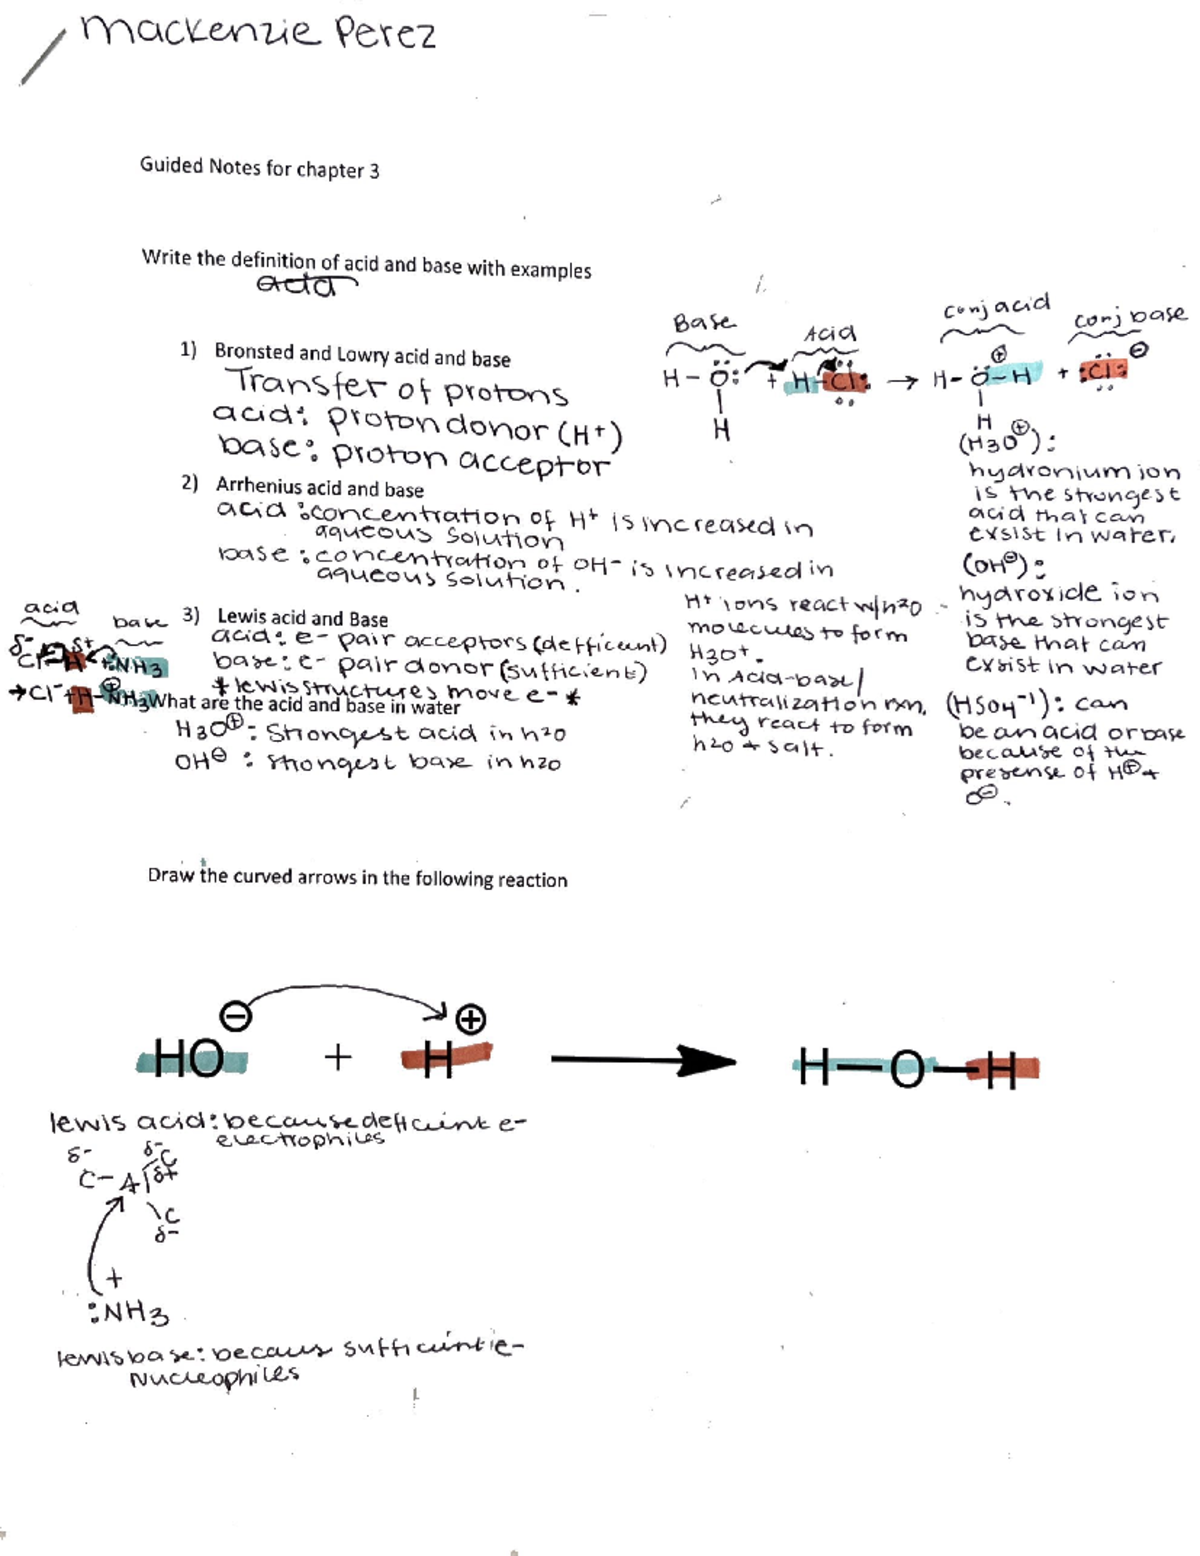 mackenzie Perez
Guided Notes for chapter 3
Write the definition of acid and base with examples
acid
1) Bronsted and Lowry acid and base
Transfer of protons
acid: proton donor (H+)
base: proton acceptor
Base
Acid
conj acid
conj base
H-Ö: + H-Cl: → H-Ö-H + :Cl:
⊕ ⊖
H
H
2) Arrhenius acid and base
acid: concentration of H+ is increased in
aqueous solution
base: concentration of OH- is increased in
aqueous solution.
(H3O⊕):
hydronium ion
is the strongest
acid that can
exsist in water.
(OH⊖):
hydroxide ion
is the strongest
base that can
exsist in water
(HSO4-1): can
be an acid or base
because of the
presense of H⊕ +
O⊖.
3) Lewis acid and Base
acid: e- pair acceptors (defficeunt)
base: e- pair donor (sufficient)
* lewis structures move e- *
acid
base
δ- δ+
Cl-H + :NH3
→Cl- + H-NH3
⊕
H+ ions react w/h2O
molecules to form
H3O+.
in Acid-base/
neutralization rxn,
they react to form
h2o + salt.
What are the acid and base in water
H3O⊕: Strongest acid in h2o
OH⊖: strongest base in h2o
Draw the curved arrows in the following reaction
⊖ ⊕
HO + H → H-O-H
lewis acid: because deficient e-
electrophiles
δ- δ-
C-Al-C
δ+
C
δ-
+
:NH3
lewis base: becaus sufficuint e-
Nucleophiles